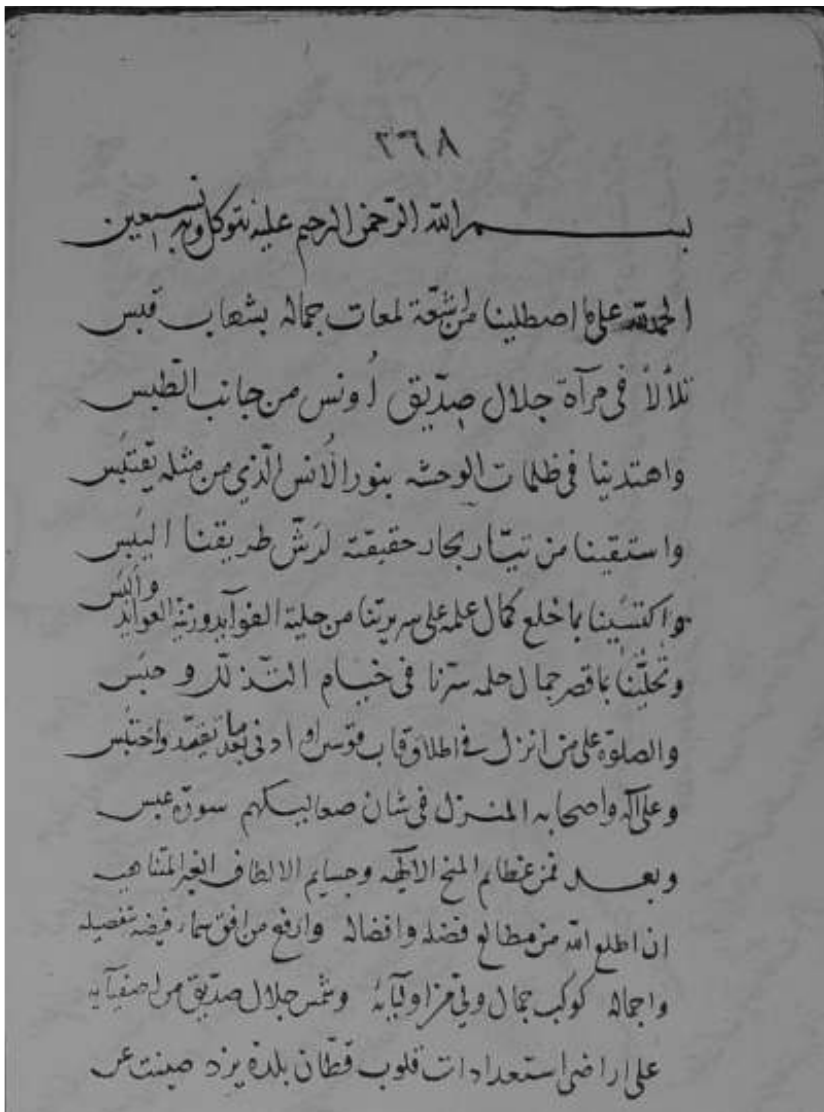 ٣٦٨
بسم الله الرحمن الرحيم عليه نتوكل وبه نستعين
الحمد لله على ما اصطلينا من اشعّة لمعات جماله بشهاب قبس
تلألأ فى مرآة جلال صدّيق اُونس من جانب الطّبس
واهتدينا فى ظلمات الوحشه بنور الاُنس الّذي من مثله يقتبَس
واستقينا من تيّار بحار حقيقته لرَشّ طريقنا اليَبس
واكتسَينا باخلع كمال علمه على سريرتنا من حلية الفوآيد وزينة العوآيد والبَس
وتحلّينا باقصر جمال حلمه سترنا فى خيام التذلّل وحبَس
والصلوة على من انزل فى اطلاق قاب قوسين او ادنى بعد ما تفقد واختلَس
وعلى آله واصحابه المنزل فى شان صعاليكهم سورة عبس
وبعد فمن عظايم المنح الالٓهيه وجسايم الالطاف الغير المتناهيه
ان اطلع الله من مطالع فضله وافضاله وارفع من افق سمآء فيضه بتفصيله
واجماله كوكب جمال ولي من اوليآئه وشمس جلال صدّيق من اصفيآيه
على اراضى استعدادات قلوب قطّان بلدة يزد صينت عن